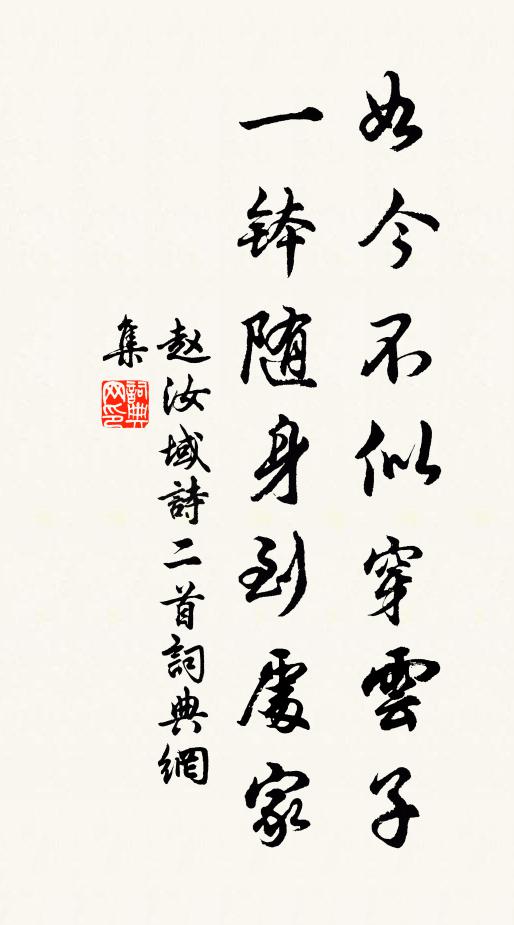 如今不似穿雲子
一钵随身到處家
赵汝域詩二首詞典網
集
詞典
网印